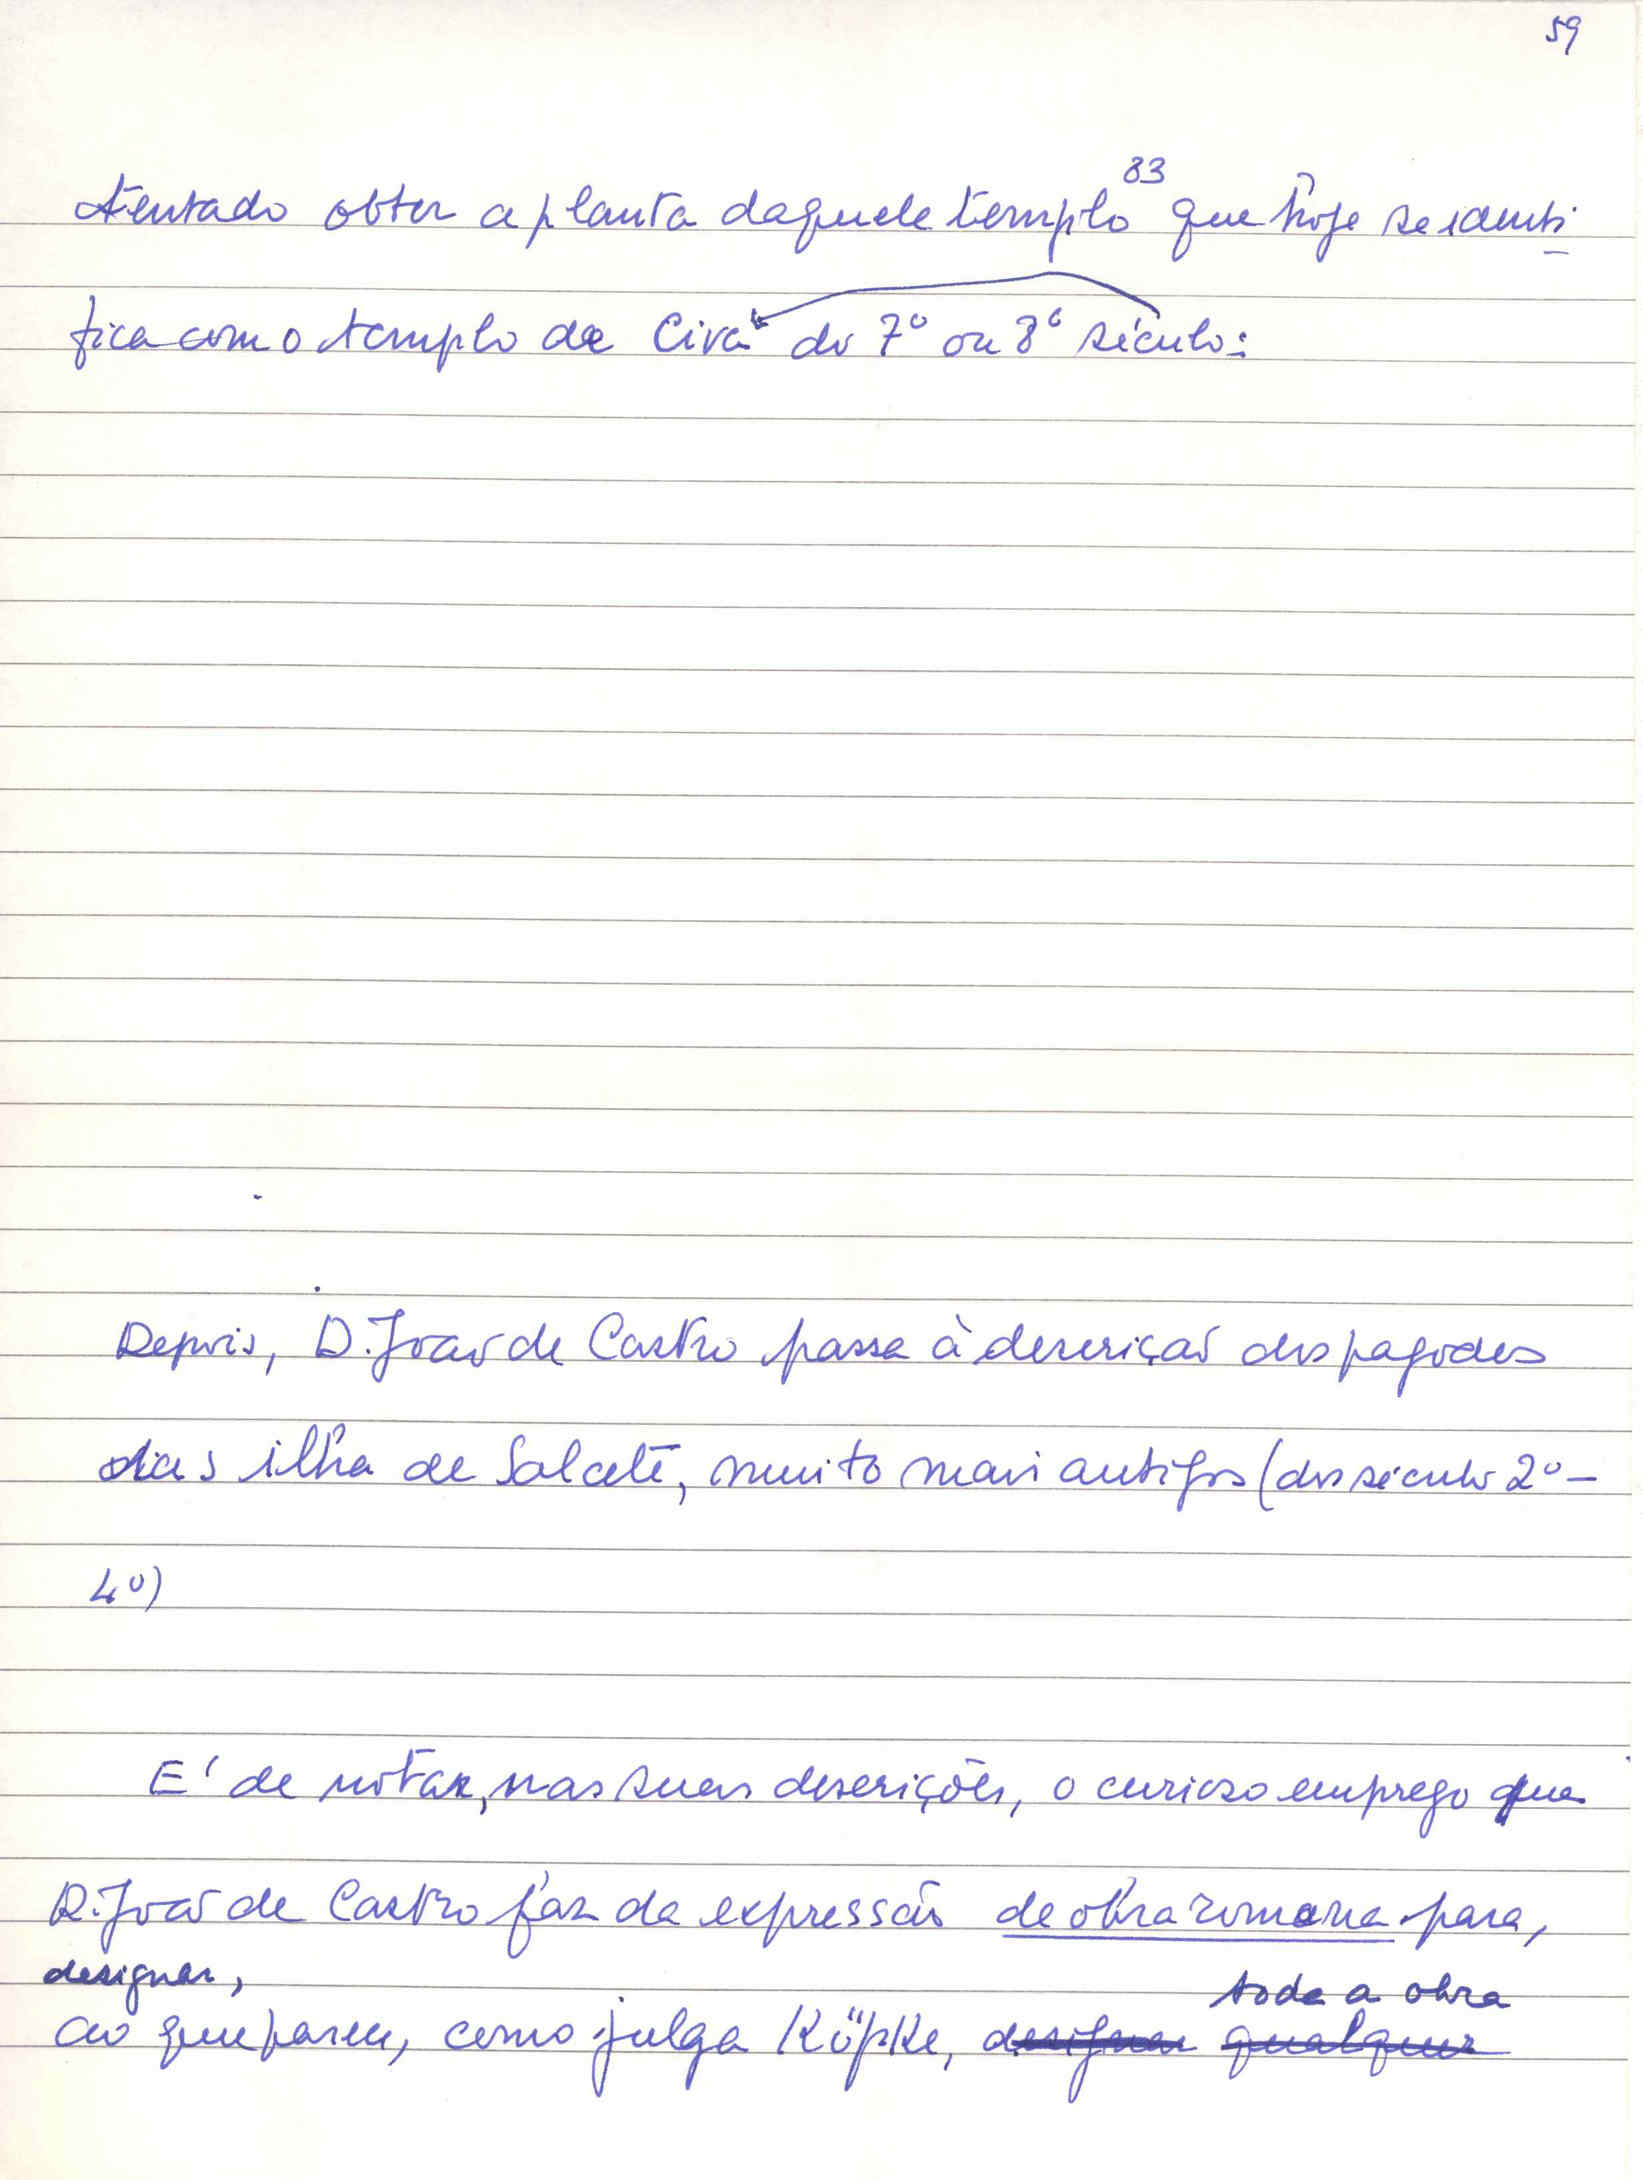 59
tentado obter a planta daquele templo 83 que hoje se identi
fica como templo de Civa do 7º ou 8º século:
Depois, D. João de Castro passa à descrição dos pagodes
das ilha de Salcete, muito mais antigos (dos século 2º –
4º)
E' de notar, nas suas descrições, o curioso emprego que
D. João de Castro faz da expressão de obra romana para,
designar,
toda a obra
ao que parece, como julga Köpke, designar qualquer